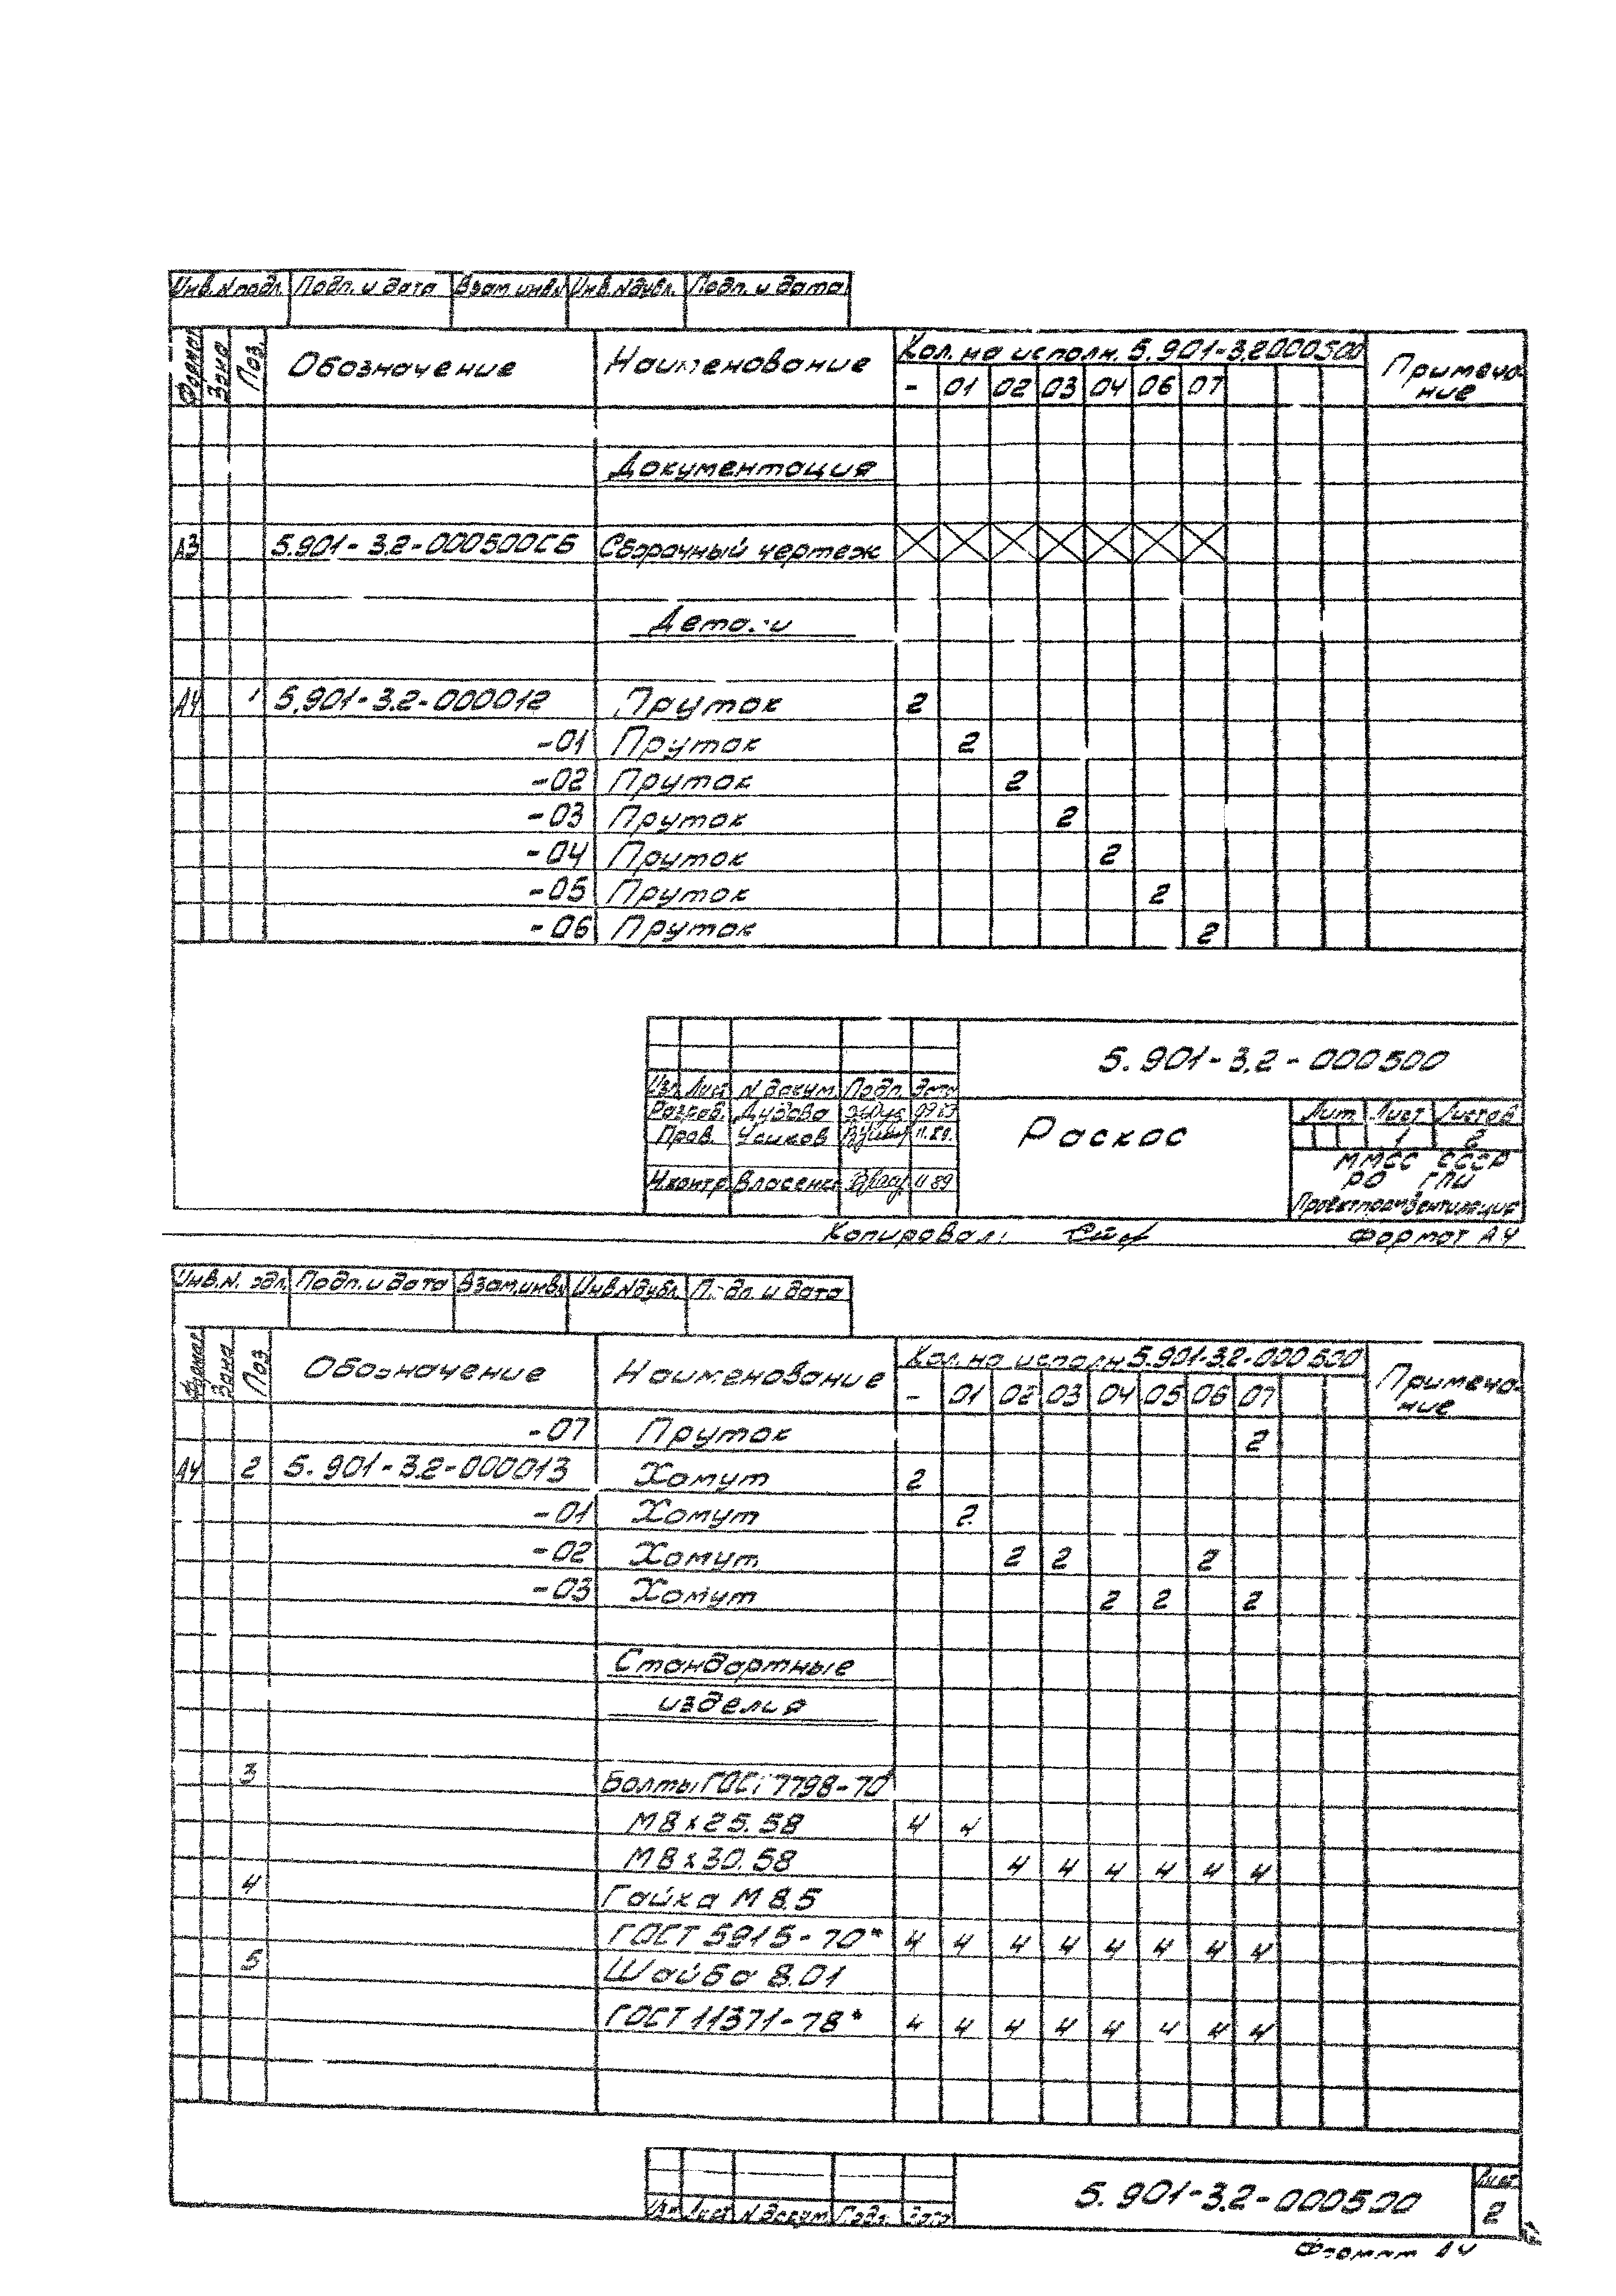 Инв.N подл. Подп. и дата Взам.инв.N Инв.Nдубл. Подп. и дата
Формат Зона Поз. Обозначение Наименование Кол. на исполн. 5.901-3.2000500 Примеча-
ние
- 01 02 03 04 06 07
Документация
А3 5.901-3.2-000500СБ Сборочный чертеж
Детали
А4 1 5.901-3.2-000012 Пруток 2
-01 Пруток 2
-02 Пруток 2
-03 Пруток 2
-04 Пруток 2
-05 Пруток 2
-06 Пруток 2
5.901-3.2-000500
Изм. Лист N докум. Подп. Дата
Разраб. Дудова
Пров. Ушков 11.89.
Раскос
Лит. Лист Листов
1 2
Н.контр. Власенко 11 89
ММСС СССР
РО ГПИ
Проектпромвентиляция
Копировал: Формат А4
Инв.N. подл. Подп. и дата Взам.инв.N Инв.Nдубл. Подп. и дата
Формат Зона Поз. Обозначение Наименование Кол. на исполн 5.901-3.2-000500 Примеча-
ние
- 01 02 03 04 05 06 07
-07 Пруток 2
А4 2 5.901-3.2-000013 Хомут 2
-01 Хомут 2
-02 Хомут 2 2 2
-03 Хомут 2 2 2
Стандартные
изделия
3 Болты ГОСТ 7798-70*
М8х25.58 4 4
М8х30.58 4 4 4 4 4 4
4 Гайка М8.5
ГОСТ 5915-70* 4 4 4 4 4 4 4 4
5 Шайба 8.01
ГОСТ 11371-78* 4 4 4 4 4 4 4 4
Изм Лист N докум. Подп. Дата
5.901-3.2-000500
Лист
2
Формат А4